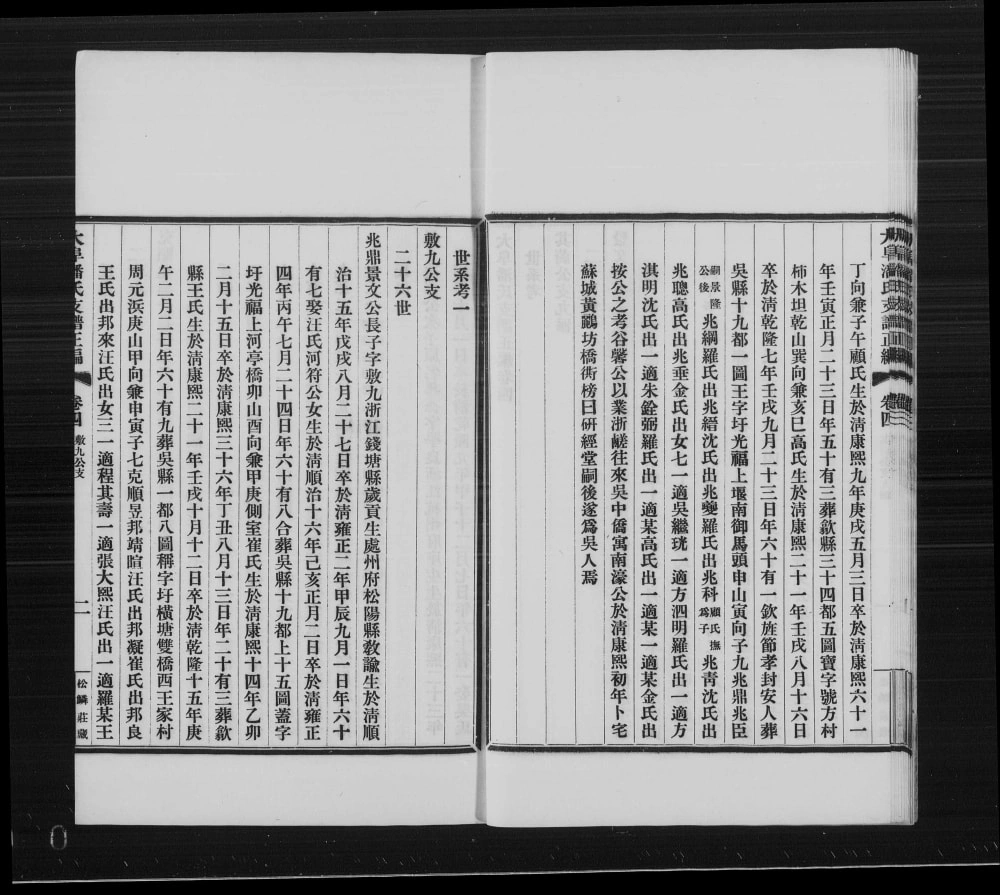 丁向兼子午顧氏生於淸康熙九年庚戌五月三日卒於淸康熙六十一
年壬寅正月二十三日年五十有三葬歙縣三十四都五圖寶字號方村
柿木坦乾山巽向兼亥巳高氏生於淸康熙二十一年壬戌八月十六日
卒於淸乾隆七年壬戌九月二十三日年六十有一欽旌節孝封安人葬
吳縣十九都一圖王字圩光福上堰南御馬頭申山寅向子九兆鼎兆臣
嗣景隆公後兆綱羅氏出兆縉沈氏出兆夔羅氏出兆科顧氏撫爲子兆靑沈氏出
兆聰高氏出兆垂金氏出女七一適吳繼珖一適方泗明羅氏出一適方
淇明沈氏出一適朱銓弼羅氏出一適某高氏出一適某一適某金氏出
按公之考谷馨公以業浙鹺往來吳中僑寓南濠公於淸康熙初年卜宅
蘇城黃鸝坊橋衖榜曰研經堂嗣後遂爲吳人焉
世系考一
敷九公支
二十六世
兆鼎景文公長子字敷九浙江錢塘縣歲貢生處州府松陽縣敎諭生於淸順
治十五年戊戌八月二十七日卒於淸雍正二年甲辰九月一日年六十
有七娶汪氏河符公女生於淸順治十六年己亥正月二日卒於淸雍正
四年丙午七月二十四日年六十有八合葬吳縣十九都上十五圖蓋字
圩光福上河亭橋卯山酉向兼甲庚側室崔氏生於淸康熙十四年乙卯
二月十五日卒於淸康熙三十六年丁丑八月十三日年二十有三葬歙
縣王氏生於淸康熙二十一年壬戌十月十二日卒於淸乾隆十五年庚
午二月二日年六十有九葬吳縣一都八圖稱字圩橫塘雙橋西王家村
周元浜庚山甲向兼申寅子七克順昱邦靖暄汪氏出邦凝崔氏出邦良
王氏出邦來汪氏出女三一適程其壽一適張大熙汪氏出一適羅某王
大阜潘氏支譜正編
卷四
敷九公支
二
松鱗莊藏